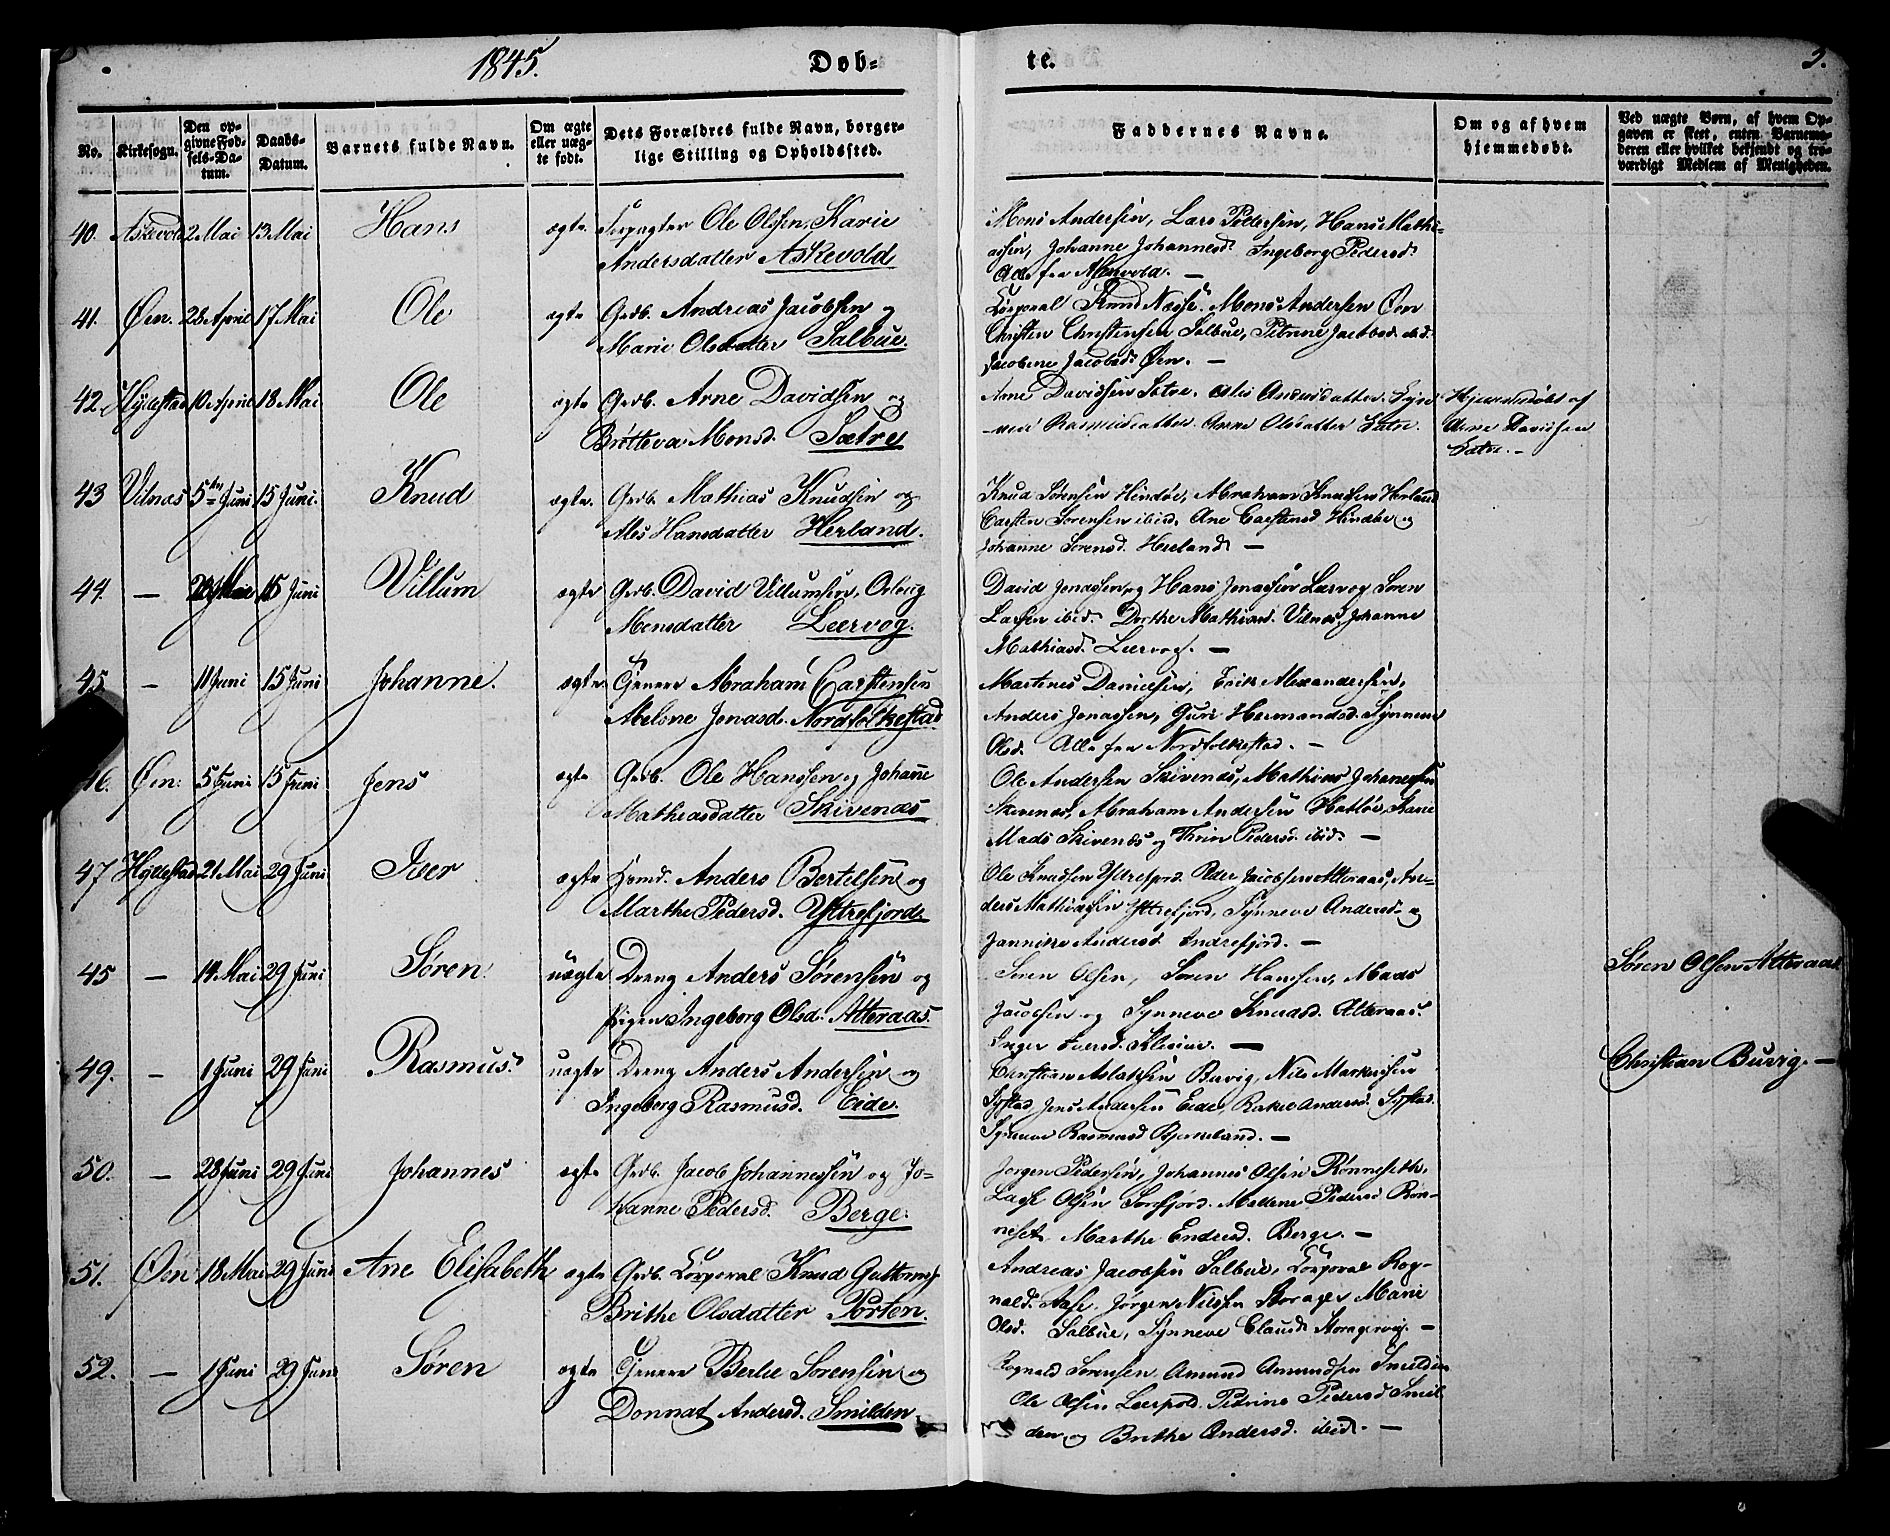 1845. Døb- te. 3.
No. Kirkesogn. Den opgivne Fødsels-Datum. Daabs-Datum. Barnets fulde Navn. Om ægte eller uægte født. Dets Forældres fulde Navn, borgerlige Stilling og Opholdssted. Faddernes Navne. Om og af hvem hjemmedøbt. Ved uægte Børn, af hvem Opgaven er skeet, enten Barnemoderen eller hvilket bekjendt og troværdigt Medlem af Menigheden.
40. Askevold 2 Mai 13 Mai Hans ægte Ole Olsen, Karie
Andersdatter Askevold
Mons Andersen, Lars Pedersen, Hans Mathi-
asen, Johanne Johannesd. Ingeborg Pedersd.
Alle fra Askevold. —
41. Øen. 28 April 17 Mai Ole ægte Grdb. Andreas Jacobsen og
Marie Olsdatter Salbue.
Corporal Knud Mons Andersen Øen
Christen Christensen Salbue, Petrine Jacobsd. ibid.
Jacobine Jacobsd. Øen. —
42. Hyllestad 10 April 18 Mai Ole ægte Grdb. Arne Davidsen og
Britteva Monsd. Sætre
Arne Davidsen Sætre. Andersdatter
Rasmusdatter. Anne Olsdatter Sætre.
Hjemmedøbt af
Arne Davidsen
Sætre. —
43 Vilnæs 5te Juni 15 Juni. Knud ægte. Grdb. Mathias Knudsen og
Ales Hansdatter Herland.
Knud Sørensen Hindøe, Abraham Knudsen Herland
Carsten Sørensen ibid. Ane Carstensd Hindøe og
Johanne Sørensd. Herland —
44. — Mai 15 Juni Villum ægte Grdb. David Villumsen,
Monsdatter Leervog.
David Jonassen og Hans Jonassen Leervog Søren
Larsen ibid. Dorthe Mathiasd. Vilnæs, Johanne
Mathiasd. Leervog. —
45. — 11 Juni 15 Juni Johanne. ægte Abraham Carstensen
Jonasd. Nordfolkestad
Martines Danielsen, Erik Alexandersen,
Anders Jonassen, Guri Hermandsd. Synneve
Olsd. Alle fra Nordfolkestad. —
46. Øen: 5 Juni 15 Juni Jens ægte Grdb. Ole Hanssen og Johanne
Mathiasdatter Skivenæs
Ole Andersen Skivenæs, Mathias Johannesen
Skivenæs, Abraham Andersen Hatløe, Karie
Mads Skivenæs og Thrin Pedersd. ibid. —
47 Hyllestad 21 Mai 29 Juni Iver ægte Anders Bertelsen og
Marthe Pedersd. Yttrefjord
Ole Knudsen Yttrefjord. Peder Jacobsen Alteraas, An-
ders Mathiasen Yttrefjord, Synneve Andersd. og
Jannike Andersd —
45 — 14 Mai 29 Juni Søren uægte Dreng Anders Sørensen og
Pigen Ingeborg Olsd. Alteraas.
Søren Olsen, Søren Hanssen, Mads
Jacobsen og Synneve Knudsd. Alteraas.
Inger Iversd. —
Søren Olsen Alteraas
49. — 1 Juni 29 Juni Rasmus. uægte Dreng Anders Andersen og
Ingeborg Rasmusd. Eide.
Christian Aslaksen Buvig, Nils Markussen
Systad, Jens Andersen Eide, Andersd. Systad.
Synneve Rasmusd Bjerkeland. —
Christian Buvig. —
50. — 28 Juni 29 Juni Johannes ægte Grdb. Jacob Johannessen og Jo-
hanne Pedersd. Berge.
Jørgen Pedersen, Johannes Olsen Rønneseth,
Olsen Sørefjord. Mallene Pedersd Røn-
neset. Marthe Endresd. Berge. —
51. Øen 18 Mai 29 Juni Ane Elisabeth ægte Grdb. Corporal Knud Guttorms.
Brithe Olsdatter Porten.
Andreas Jacobsen Salbue, Corporal Rog-
nald. Aase. Jørgen Nilsen Storager Marie
Olsd. Salbue, Synneve Clausd. —
52. — 1 Juni 29 Juni Søren ægte Berlie Sørensen og
Donnat Andersd. Smilden
Rognald Sørensen, Amund Amundsen Smilden
Ole Olsen Petrine Pedersd Smil
den og Brithe Andersd. ibid. —